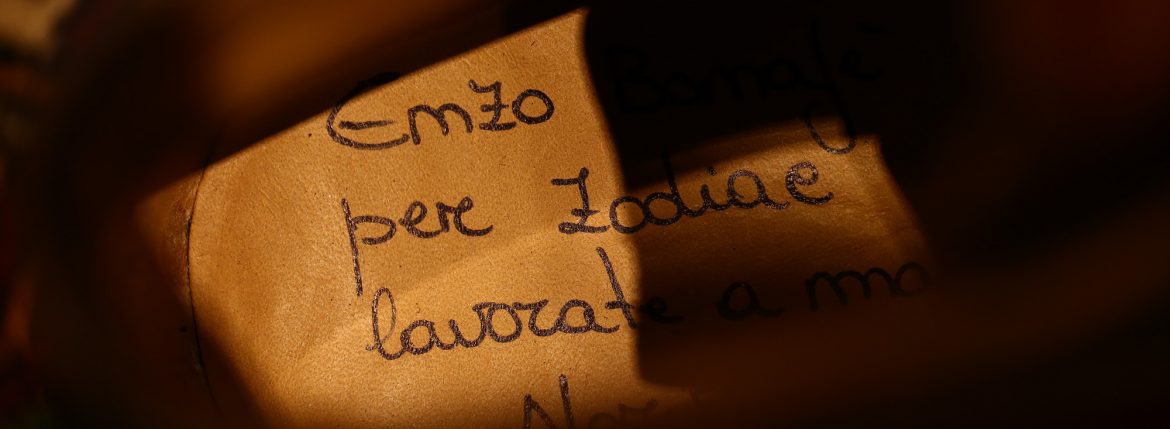 Enzo Bonafè
per Zodiac
lavorate a